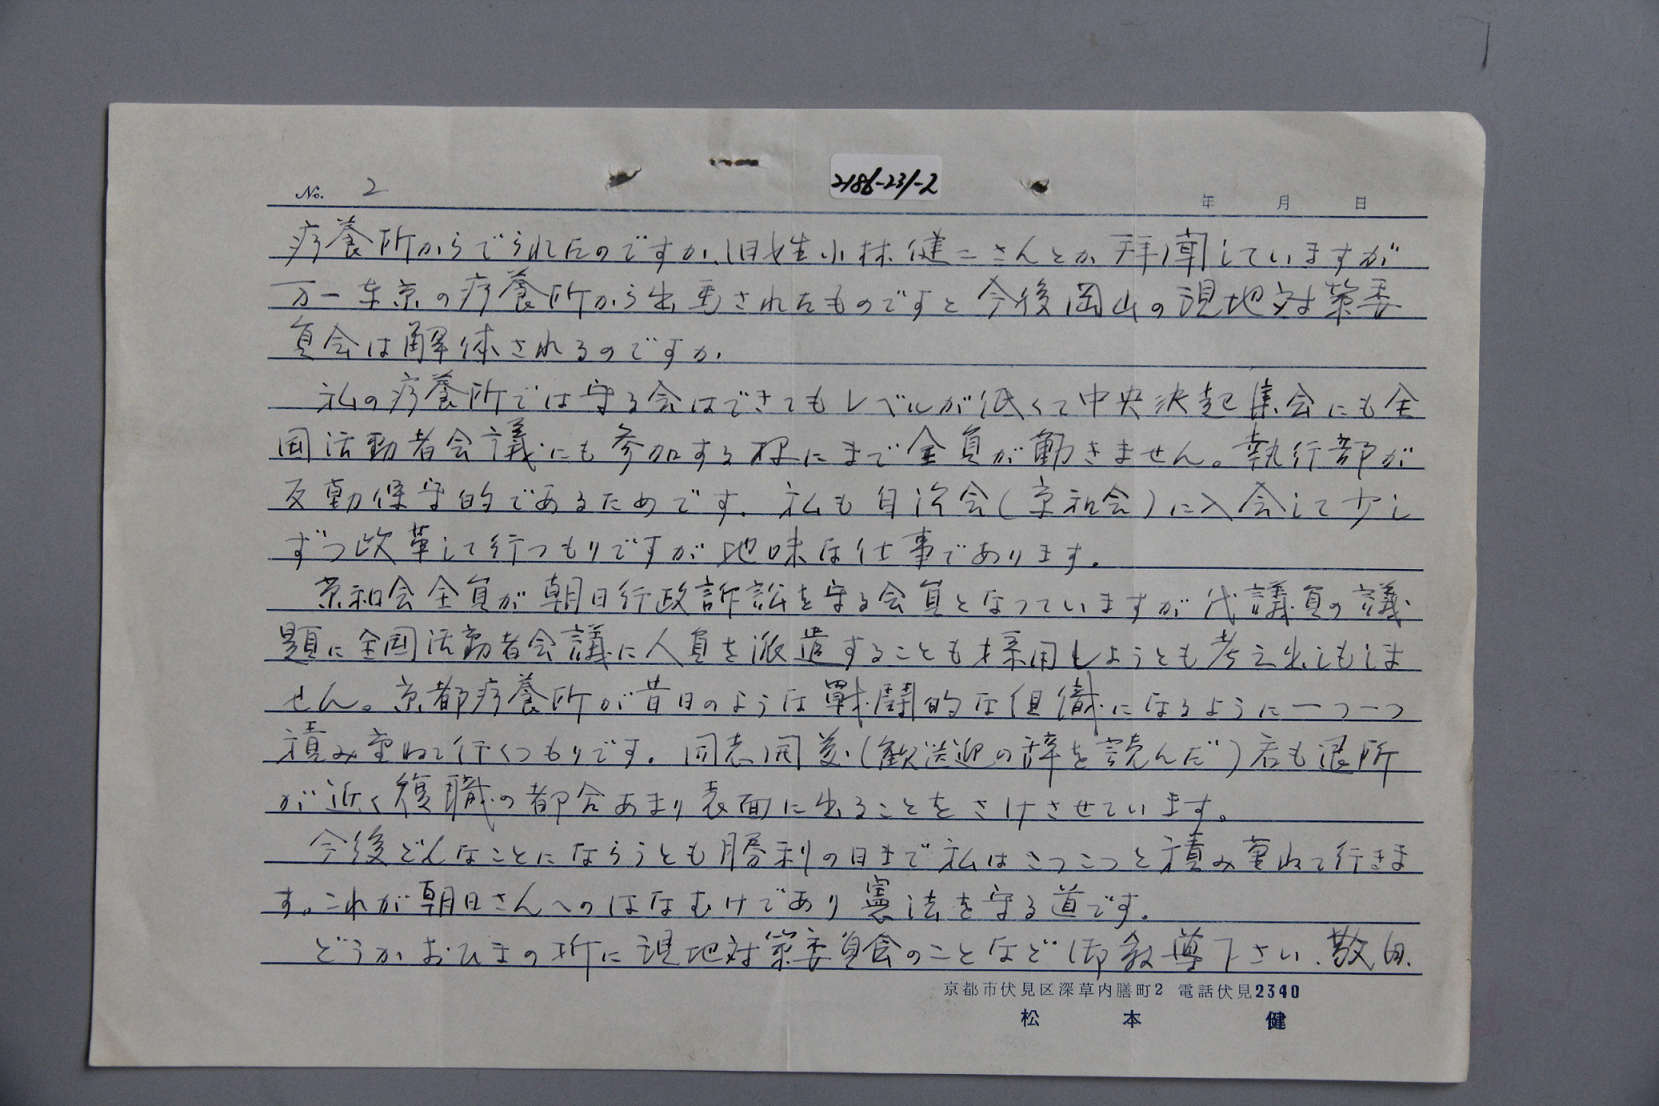 No. 2
2186-231-2
年 月 日
療養所からでられたのですか、旧姓小林健二さんとか拝聞していますが
万一東京の療養所から出馬されたものですと今後岡山の現地対策委
員会は解体されるのですか.
私の療養所では守る会はできてもレベルが低くて中央決起集会にも全
国活動者会議にも参加する様にまで全員が動きません。執行部が
反動保守的であるためです. 私も自治会(京和会)に入会して少し
ずつ改革して行つもりですが地味な仕事であります.
京和会全員が朝日行政訴訟を守る会員となっていますが代議員の議
題に全国活動者会議に人員を派遣することも採用しようとも考え出しもしま
せん。京都療養所が昔日のような戦闘的な組織になるように一つ一つ
積み重ねて行くつもりです. 同志(歓送迎の辞を読んだ)君も退所
が近く復職の都合あまり表面に出ることをさけさせています。
今後どんなことにならうとも勝利の日まで私はこつこつと積み重ねて行きま
す。これが朝日さんへのはなむけであり憲法を守る道です.
どうかおひまの折に現地対策委員会のことなど御教導下さい. 敬白.
京都市伏見区深草内膳町2 電話伏見2340
松本 健